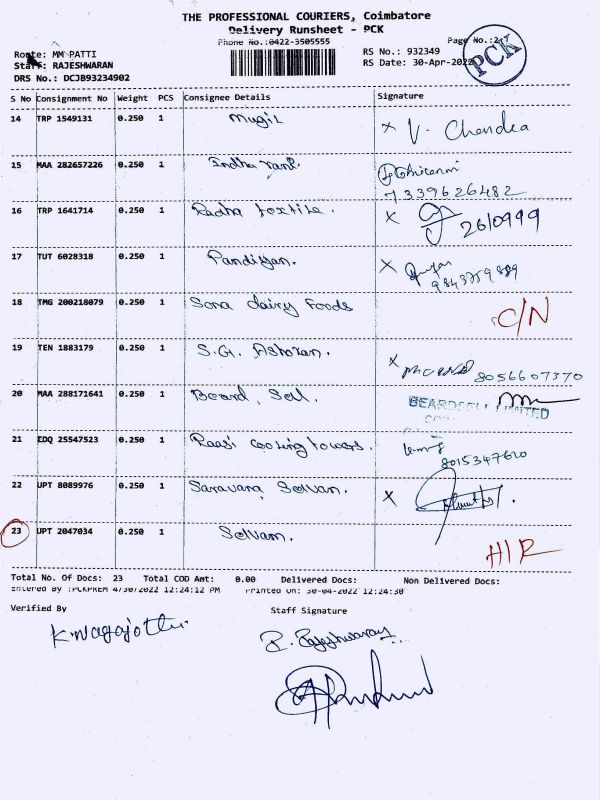 THE PROFESSIONAL COURIERS, Coimbatore
Delivery Runsheet - PCK
Phone No.:0422-3505555 Page No.:2
Route: MM PATTI RS No.: 932349
Staff: RAJESHWARAN RS Date: 30-Apr-2022
PCK
DRS No.: DCJB93234902
S No Consignment No Weight PCS Consignee Details Signature
14 TRP 1549131 0.250 1 Mugil x V. Chandra
15 MAA 282657226 0.250 1 Indhu rani.
7339626482
16 TRP 1641714 0.250 1 Radha textile. x 260999
17 TUT 6028318 0.250 1 Pandiyan. x
18 TMG 200218079 0.250 1 Sona dairy Foods C/N
19 TEN 1883179 0.250 1 S.G. Ashokan. x 8056607370
20 MAA 288171641 0.250 1 Beard Sell. BEARDSELL LIMITED
21 EDQ 25547523 0.250 1 Raasi cooling towers.
8015347620
22 UPT 8089976 0.250 1 Saravana Selvan. x
23 UPT 2047034 0.250 1 Selvam. H/R
Total No. Of Docs: 23 Total COD Amt: 0.00 Delivered Docs: Non Delivered Docs:
Entered By :PCKPREM 4/30/2022 12:24:12 PM Printed On: 30-04-2022 12:24:30
Verified By Staff Signature
K. Nagajothi R. Rajeshwaran